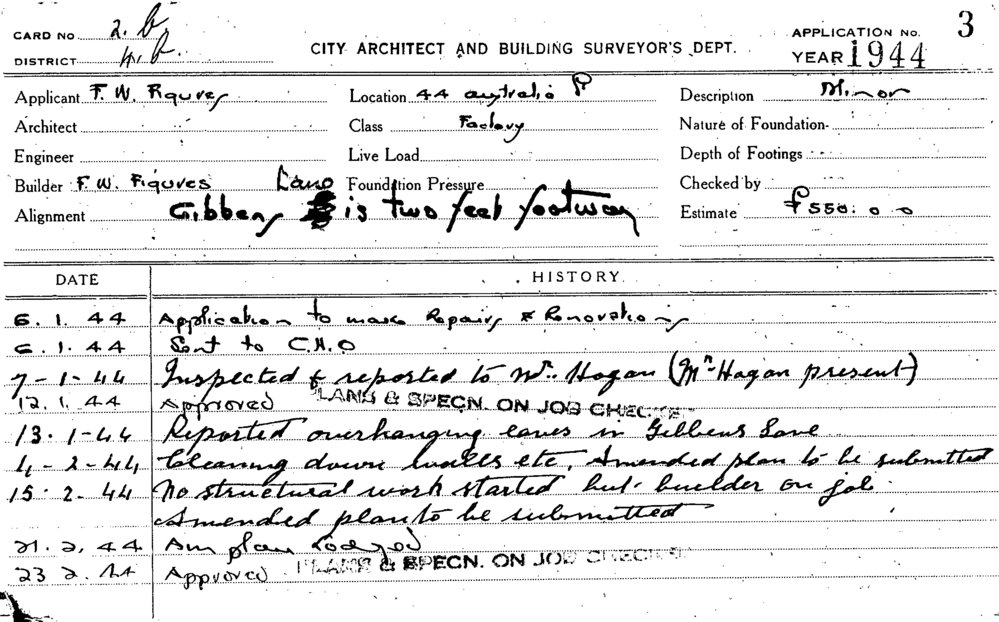 CARD No 2. b
DISTRICT
CITY ARCHITECT AND BUILDING SURVEYOR'S DEPT.
APPLICATION No. 3
YEAR 1944
Applicant F. W. Figures
Location 44 australia P
Description Minor
Architect
Class Factory
Nature of Foundation
Engineer
Live Load
Depth of Footings
Builder F. W. Figures
Foundation Pressure
Checked by
Lane
Alignment Gibbens is two feet footway
Estimate £550. 0 0
DATE HISTORY
6. 1. 44 Application to make Repairs & Renovations
6. 1. 44 Sent to C.H.O
7-1-44 Inspected & reported to Mr. Hogan (Mr Hagan present)
12. 1. 44 Approved PLANS & SPECN. ON JOB CHECKED
13. 1-44 Reported overhanging eaves in Gibbens Lane
4-2-44 Cleaning down walls etc. Amended plan to be submitted
15. 2. 44 No structural work started but builder on job.
Amended plan to be submitted
21. 2. 44 Am plan Lodged
23 2. 44 Approved PLANS & SPECN. ON JOB CHECKED